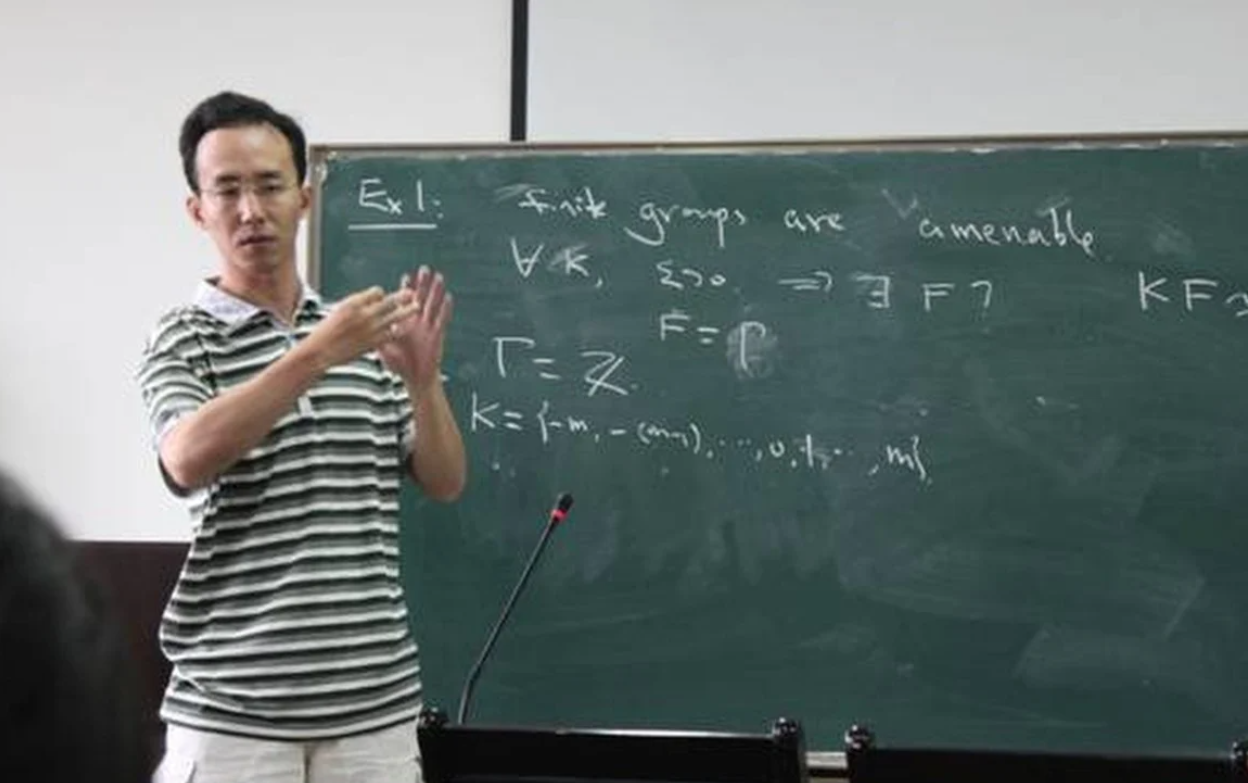 Ex 1: finite groups are amenable
∀ K, ε>0 ⇒ ∃ F ? KF
F = Γ
Γ = ℤ.
K = {-m, -(m-1), ..., 0, 1, ..., m}